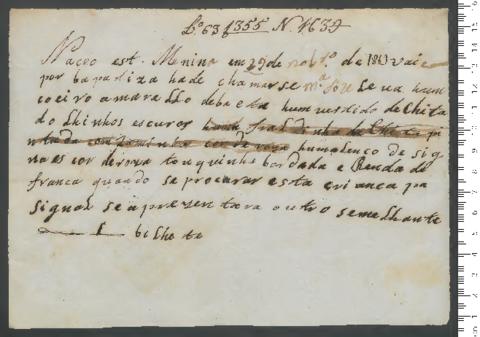 Lº 63 f 355 N. 4639
Naceo est. Menina em 29 de de 1813 vai
por baptiza hade chamarse Mª Joze leva hum
coeiro amarello debaeta hum vestido de Chita
dolhinhos escuros
humalenco de sig
na es cor derova touquinha bordada e Renda de
franca quando se procurar esta crianca pa
signal se aprezentara outro semelhante
bilhete